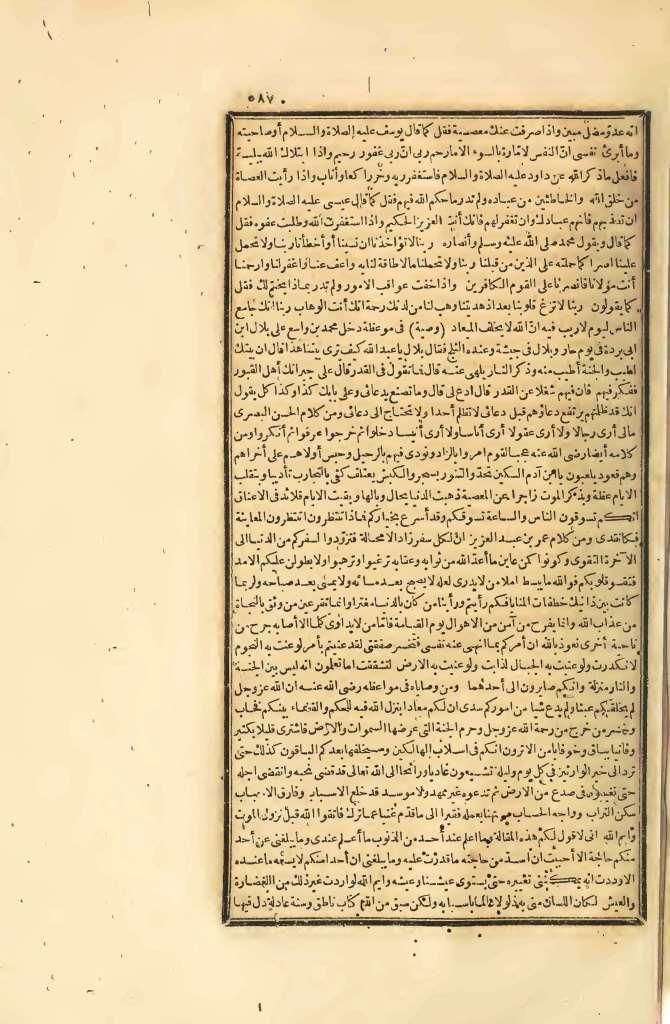 ٥٨٧
انه عدو مضل مبين واذا صرفت عنك معصية فقل كما قال يوسف عليه الصلاة والسلام أو صاحبته
وما أبرئ نفسي ان النفس لامارة بالسوء الا مارحم ربي ان ربي غفور رحيم واذا ابتلاك الله ببلية
فافعل ما ذكر الله عن داود عليه الصلاة والسلام فاستغفر ربه وخر راكعا وأناب واذا رأيت العصاة
من خلق الله والخاطئين من عباده ولم تدر ما حكم الله فيهم فقل كما قال عيسى عليه الصلاة والسلام
ان تعذبهم فانهم عبادك وان تغفر لهم فانك أنت العزيز الحكيم واذا استغفرت الله وطلبت عفوه فقل
كما قال ويقول محمد صلى الله عليه وسلم وأنصاره ربنا لا تؤاخذنا ان نسينا أو أخطأنا ربنا ولا تحمل
علينا اصرا كما حملته على الذين من قبلنا ربنا ولا تحملنا ما لا طاقة لنا به واعف عنا واغفر لنا وارحمنا
أنت مولانا فانصرنا على القوم الكافرين واذا خفت عواقب الامور ولم تدر بماذا يختم لك فقل
كما يقولون ربنا لا تزغ قلوبنا بعد اذ هديتنا وهب لنا من لدنك رحمة انك أنت الوهاب ربنا انك جامع
الناس ليوم لا ريب فيه ان الله لا يخلف الميعاد (وصية) في موعظة دخل محمد بن واسع على بلال ابن
ابي بردة في يوم حار وبلال في حيشة وعنده الثلج فقال بلال يا عبد الله كيف ترى بيتنا هذا قال ان بيتك
لطيب والجنة أطيب منه وذكر النار يلهى عنه قال ما تقول في القدر قال على جيرانك أهل القبور
ففكر فيهم فان فيهم شغلا عن القدر قال ادع لي قال وما تصنع بدعائي وعلى بابك كذا وكذا كل يقول
انك قد ظلمتهم يرتفع دعاؤهم قبل دعائي لا تظلم أحدا ولا تحتاج الى دعائي ومن كلام الحسن البصري
مالي أرى رجالا ولا أرى عقولا أرى أناسا ولا أرى أنيسا دخلوا ثم خرجوا عرفوا ثم أنكروا ومن
كلامه أيضا رضي الله عنه عجبا لقوم امروا بالزاد ونودي فيهم بالرحيل وحبس أولاهم على أخراهم
وهم قعود يلعبون يا ابن آدم السكين تحد والتنور يسجر والكبش يعتلف كفى بالتجارب تأديبا وبتقلب
الايام عظة وبذكر الموت زاجرا عن المعصية ذهبت الدنيا بحال وبالها وبقيت الايام قلائد في الاعناق
انكم تسوقون الناس والساعة تسوقكم وقد أسرع بخياركم فماذا تنتظرون اتنتظرون المعاينة
فكأن قدي ومن كلام عمر بن عبد العزيز ان لكل سفر زاد الا محالة فتزودوا لسفركم من الدنيا الى
الآخرة التقوى وكونوا كمن عاين ما أعد الله من ثوابه وعقابه ترغبوا وترهبوا ولا يطولن عليكم الامد
فتقسو قلوبكم فوالله ما بسط املا من لا يدرى لعله لا يصبح بعد مسائه ولا يمسى بعد صباحه ولربما
كانت بين ذلك خطفات المنايا فكم رأيتم ورأينا من كان بالدنيا مغترا وانما تقر عين من وثق بالنجاة
من عذاب الله وانما يفرح من آمن من الاهوال يوم القيامة فأما من لا يداوى كلما الا أصابه جرح من
ناحية أخرى نعوذ بالله ان أمركم بما انهى عنه نفسي فتخسر صفقتي لقد عنيتم بأمر لو عنت به النجوم
لانكدرت ولو عنيت به الجبال لذابت ولو عنيت به الارض لتشققت اما تعلمون انه ليس بين الجنة
والنار منزلة وانكم صايرون الى أحدهما ومن وصاياه في مواعظه رضي الله عنه ان الله عز وجل
لم يخلقكم عبثا ولم يدع شيئا من اموركم سدى ان لكم معادا ينزل الله فيه للحكم والقضاء بينكم فخاب
وخسر من خرج من رحمة الله عز وجل وحرم الجنة التي عرضها السموات والارض فاشترى قليلا بكثير
وفانيا بباق وخوفا بأمن الا ترون انكم في اسلاب الهالكين وسيخلفها بعدكم الباقون كذلك حتى
ترد الى خير الوارثين في كل يوم وليلة تشيعون غاديا ورائحا الى الله تعالى قد قضى نحبه وانقضى اجله
حتى تغيبوه في صدع من الارض ثم تدعوه غير ممهد ولا موسد قد خلع الاسباب وفارق الاحباب
سكن التراب وواجه الحساب مرتهنا بعمله فقيرا الى ما قدم غنيا عما ترك فاتقوا الله قبل نزول الموت
وأيم الله اني لاقول لكم هذه المقالة وما اعلم عند أحد من الذنوب ما أعلم عندي وما يبلغني عن أحد
منكم حاجة الا أحببت ان أسد من حاجته ما قدرت عليه وما يبلغني ان أحدا منكم لا يسعه ما عنده
الا وددت انه يمكنني تغييره حتى يستوى عيشنا وعيشه وايم الله لو اردت غير ذلك من الغضارة
والعيش لكان اللسان مني به ذلولا عالما باسبابه ولكن سبق من الله كتاب ناطق وسنة عادلة دل فيها